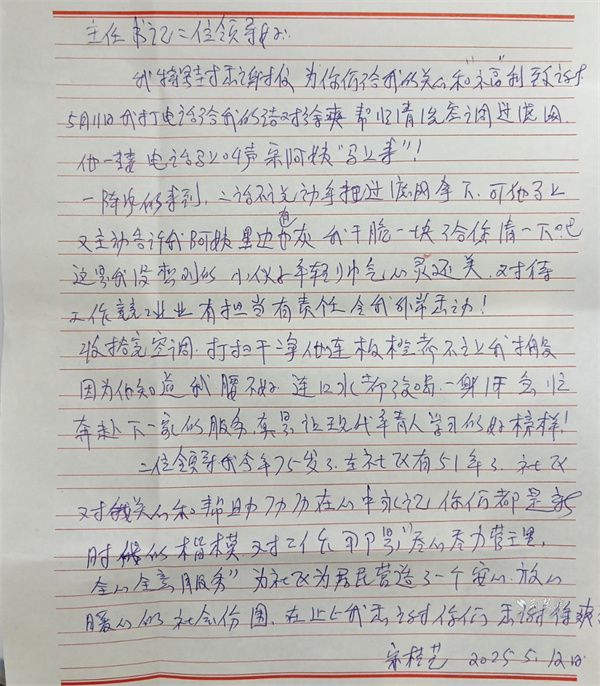 主任书记二位领导好:
我特写封感谢信 为你们给我的关心和"福"利致谢
5月11日我打电话给我的结对徐爽 帮归清洗空调过滤网
他一接电话马上叫声宋阿姨"马上来"!
一阵风似的来到,二话不说动手把过滤网拿下,可他马上
又主动告诉我阿姨里边也有灰 我干脆一块给你清一下吧
这是我没想到的 小伙子年轻帅气心灵还美 对待
工作兢兢业业有担当有责任令我非常感动!
收拾完空调.打扫干净他连板橙都不让我搬
因为他知道我腰不好 连口水都没喝.一身汗急忙
奔赴下一家的服务,真是让现代年青人学习的好榜样!
二位领导我今年75岁了.在社区有51年了.社区
对我关心和帮助历历在心中永记 你们都是新
时代的楷模 对工作 那是"尽心尽力
全心全意服务" 为社区为居民营造了一个安心.放心
暖心的社会份围.在此上我感谢你们 感谢徐爽
宋桂艺 2025.5.12日